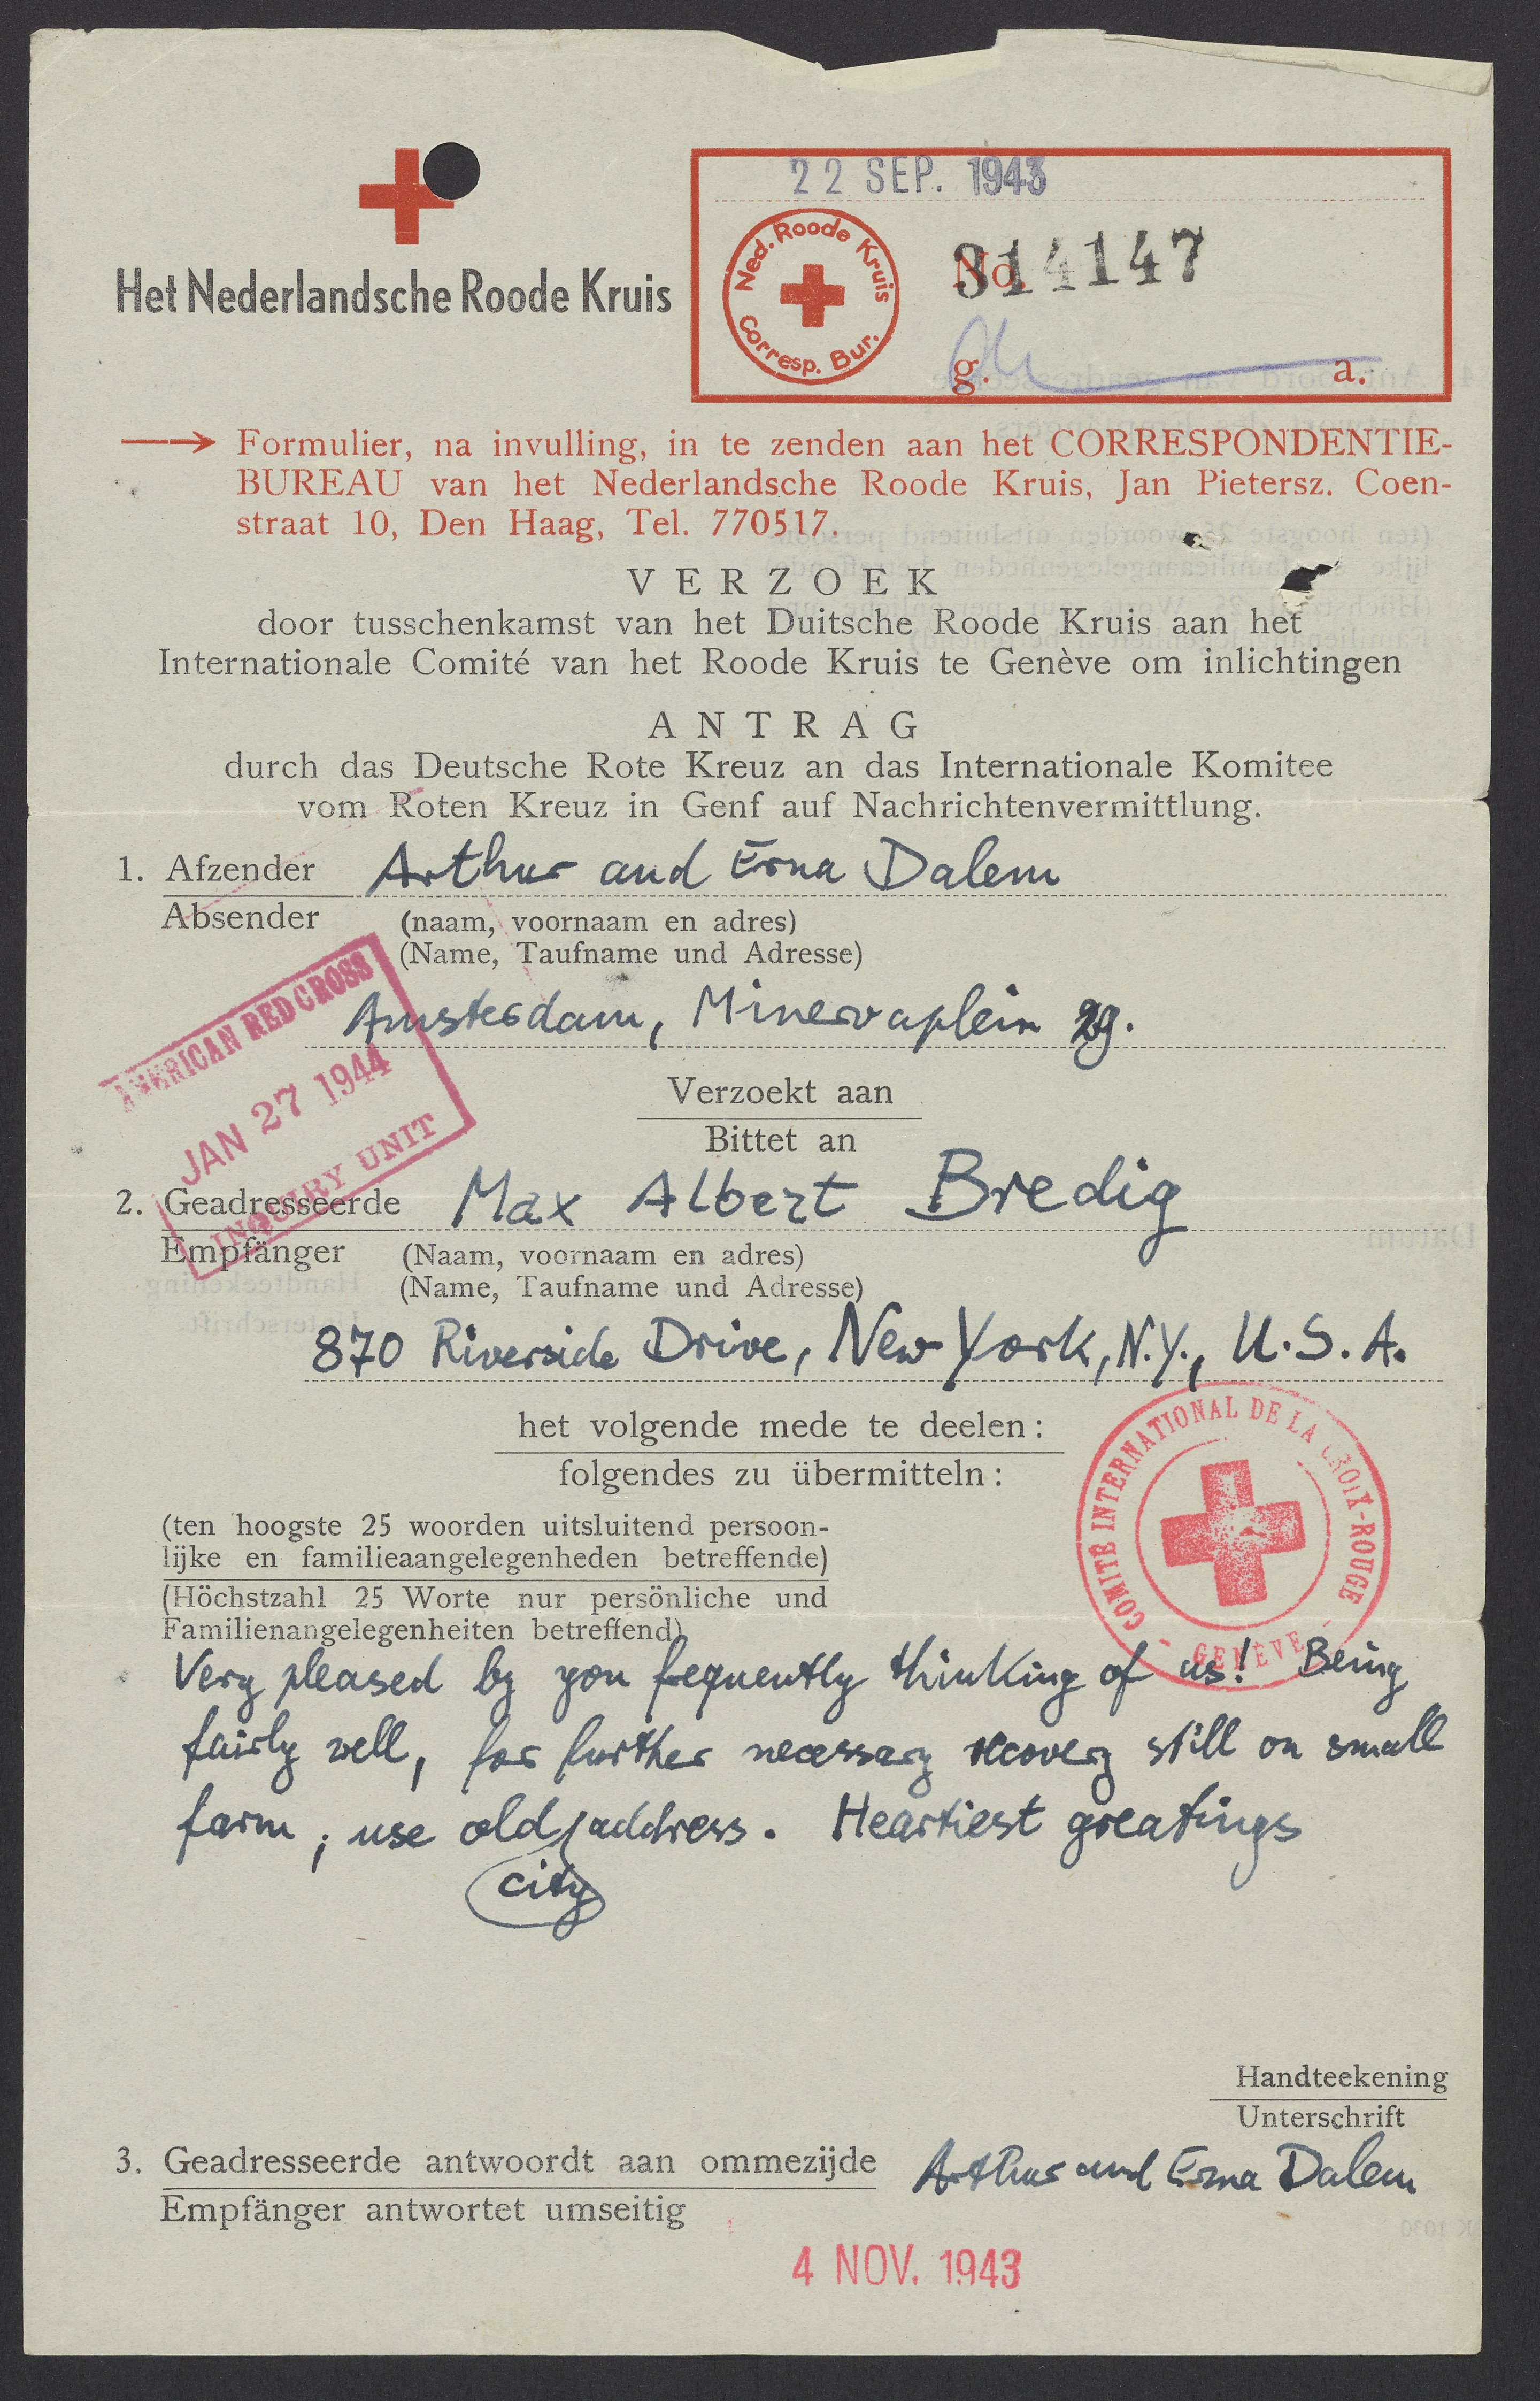 22 SEP. 1943
Ned. Roode Kruis
Corresp. Bur.
No. 314147
g. a.
Het Nederlandsche Roode Kruis
Formulier, na invulling, in te zenden aan het CORRESPONDENTIE-
BUREAU van het Nederlandsche Roode Kruis, Jan Pietersz. Coen-
straat 10, Den Haag, Tel. 770517.
VERZOEK
door tusschenkamst van het Duitsche Roode Kruis aan het
Internationale Comité van het Roode Kruis te Genève om inlichtingen
ANTRAG
durch das Deutsche Rote Kreuz an das Internationale Komitee
vom Roten Kreuz in Genf auf Nachrichtenvermittlung.
1. Afzender Arthur and Erna Dalem
Absender (naam, voornaam en adres)
(Name, Taufname und Adresse)
Amsterdam, Minervaplein 29.
AMERICAN RED CROSS
JAN 27 1944
INQUIRY UNIT
Verzoekt aan
Bittet an
2. Geadresseerde Max Albert Bredig
Empfänger (Naam, voornaam en adres)
(Name, Taufname und Adresse)
870 Riverside Drive, New York, N.Y., U.S.A.
het volgende mede te deelen:
folgendes zu übermitteln:
COMITÉ INTERNATIONAL DE LA CROIX-ROUGE
- GENÈVE -
(ten hoogste 25 woorden uitsluitend persoon-
lijke en familieaangelegenheden betreffende)
(Höchstzahl 25 Worte nur persönliche und
Familienangelegenheiten betreffend)
Very pleased by you frequently thinking of us! Being
fairly well, for further necessary recovery still on small
farm; use old address. Heartiest greatings
city
Handteekening
Unterschrift
3. Geadresseerde antwoordt aan ommezijde Arthur and Erna Dalem
Empfänger antwortet umseitig
4 NOV. 1943